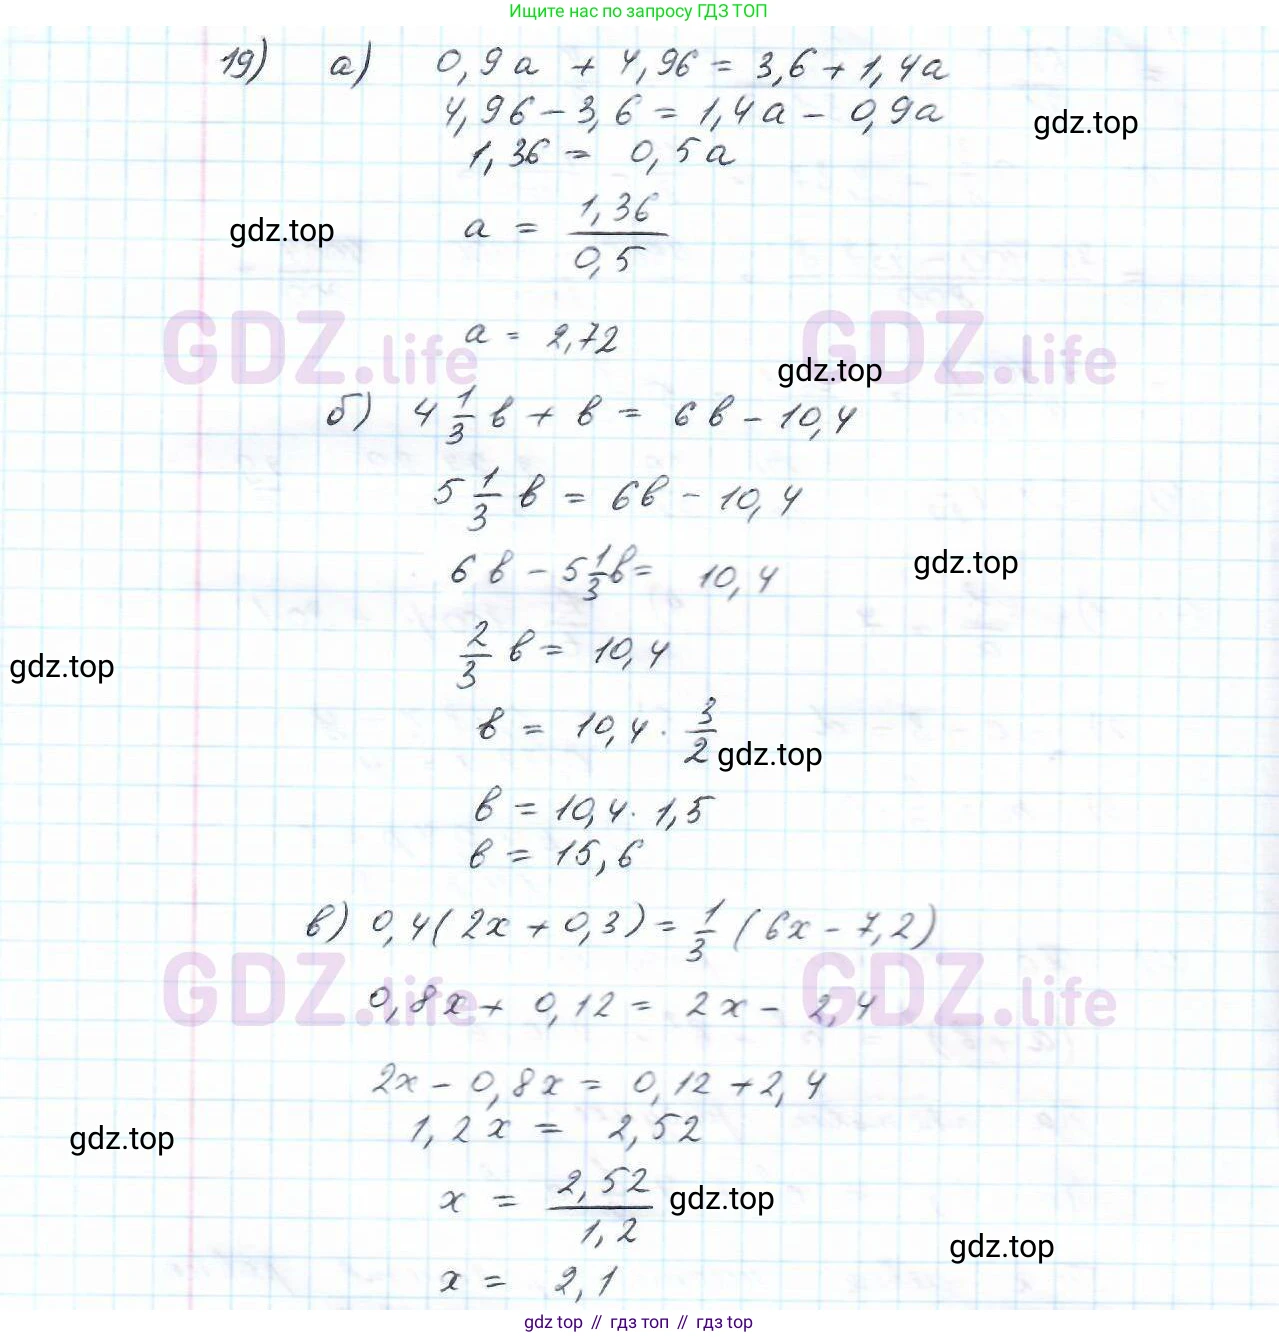 Ищите нас по запросу ГДЗ ТОП
19) а) 0,9a + 4,96 = 3,6 + 1,4a
4,96 - 3,6 = 1,4a - 0,9a
gdz.top
1,36 = 0,5a
gdz.top
a = 1,36/0,5
GDZ.life GDZ.life
a = 2,72
gdz.top
б) 4 1/3 в + в = 6в - 10,4
5 1/3 в = 6в - 10,4
6в - 5 1/3 в = 10,4
gdz.top
2/3 в = 10,4
gdz.top
в = 10,4 · 3/2
gdz.top
в = 10,4 · 1,5
в = 15,6
в) 0,4(2x + 0,3) = 1/3 (6x - 7,2)
GDZ.life GDZ.life
0,8x + 0,12 = 2x - 2,4
2x - 0,8x = 0,12 + 2,4
1,2x = 2,52
gdz.top
x = 2,52/1,2
gdz.top
gdz.top
x = 2,1
gdz.top // гдз топ // гдз top